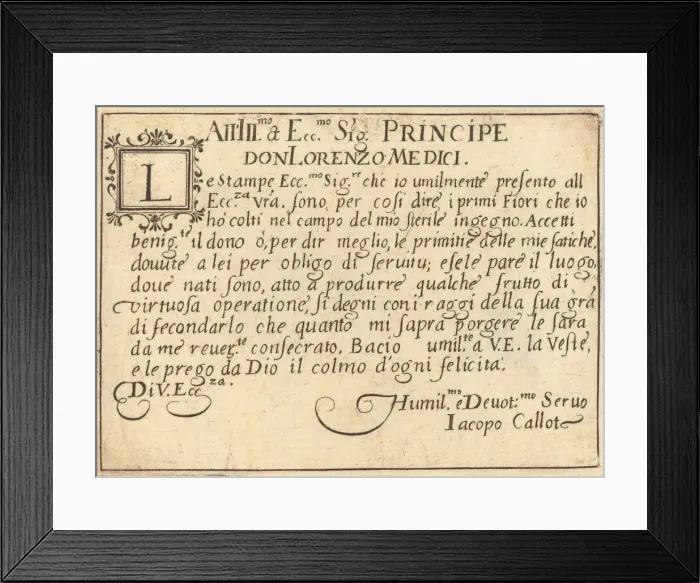 All'Ill.mo & Ecc.mo Sig: PRINCIPE
DON LORENZO MEDICI.
Le Stampe Ecc.mo Sig.re che io umilmente presento all
Ecc.za vrã. sono, per cosi dire, i primi Fiori che io
ho colti nel campo del mio sterile ingegno. Accetti
benig.te il dono ò, per dir meglio, le primitie delle mie fatiche,
douute a lei per obligo di seruitu; e se le pare il luogo,
doue nati sono, atto a produrre qualche frutto di
virtuosa operatione, si degni con i raggi della sua grã
di fecondarlo che quanto mi sapra porgere le sara
da me reuer.te consecrato, Bacio umil.te a V.E. la Veste,
e le prego da Dio il colmo d'ogni felicita.
Di V. Ecc.za.
Humil.mo e Deuot.mo Seruo
Iacopo Callot